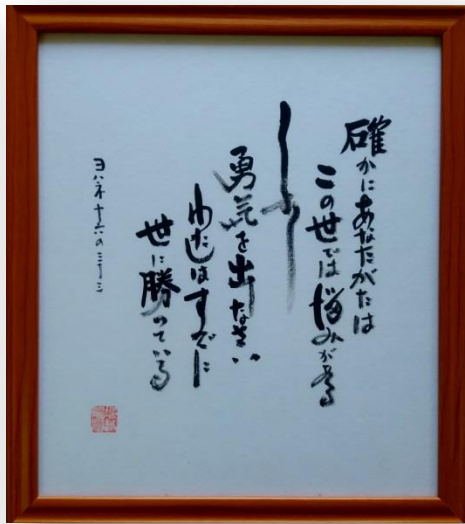 確かにあなたがたは
この世では悩みがある
しかし
勇気を出しなさい
わたしはすでに
世に勝っている
ヨハネ十六の三十三